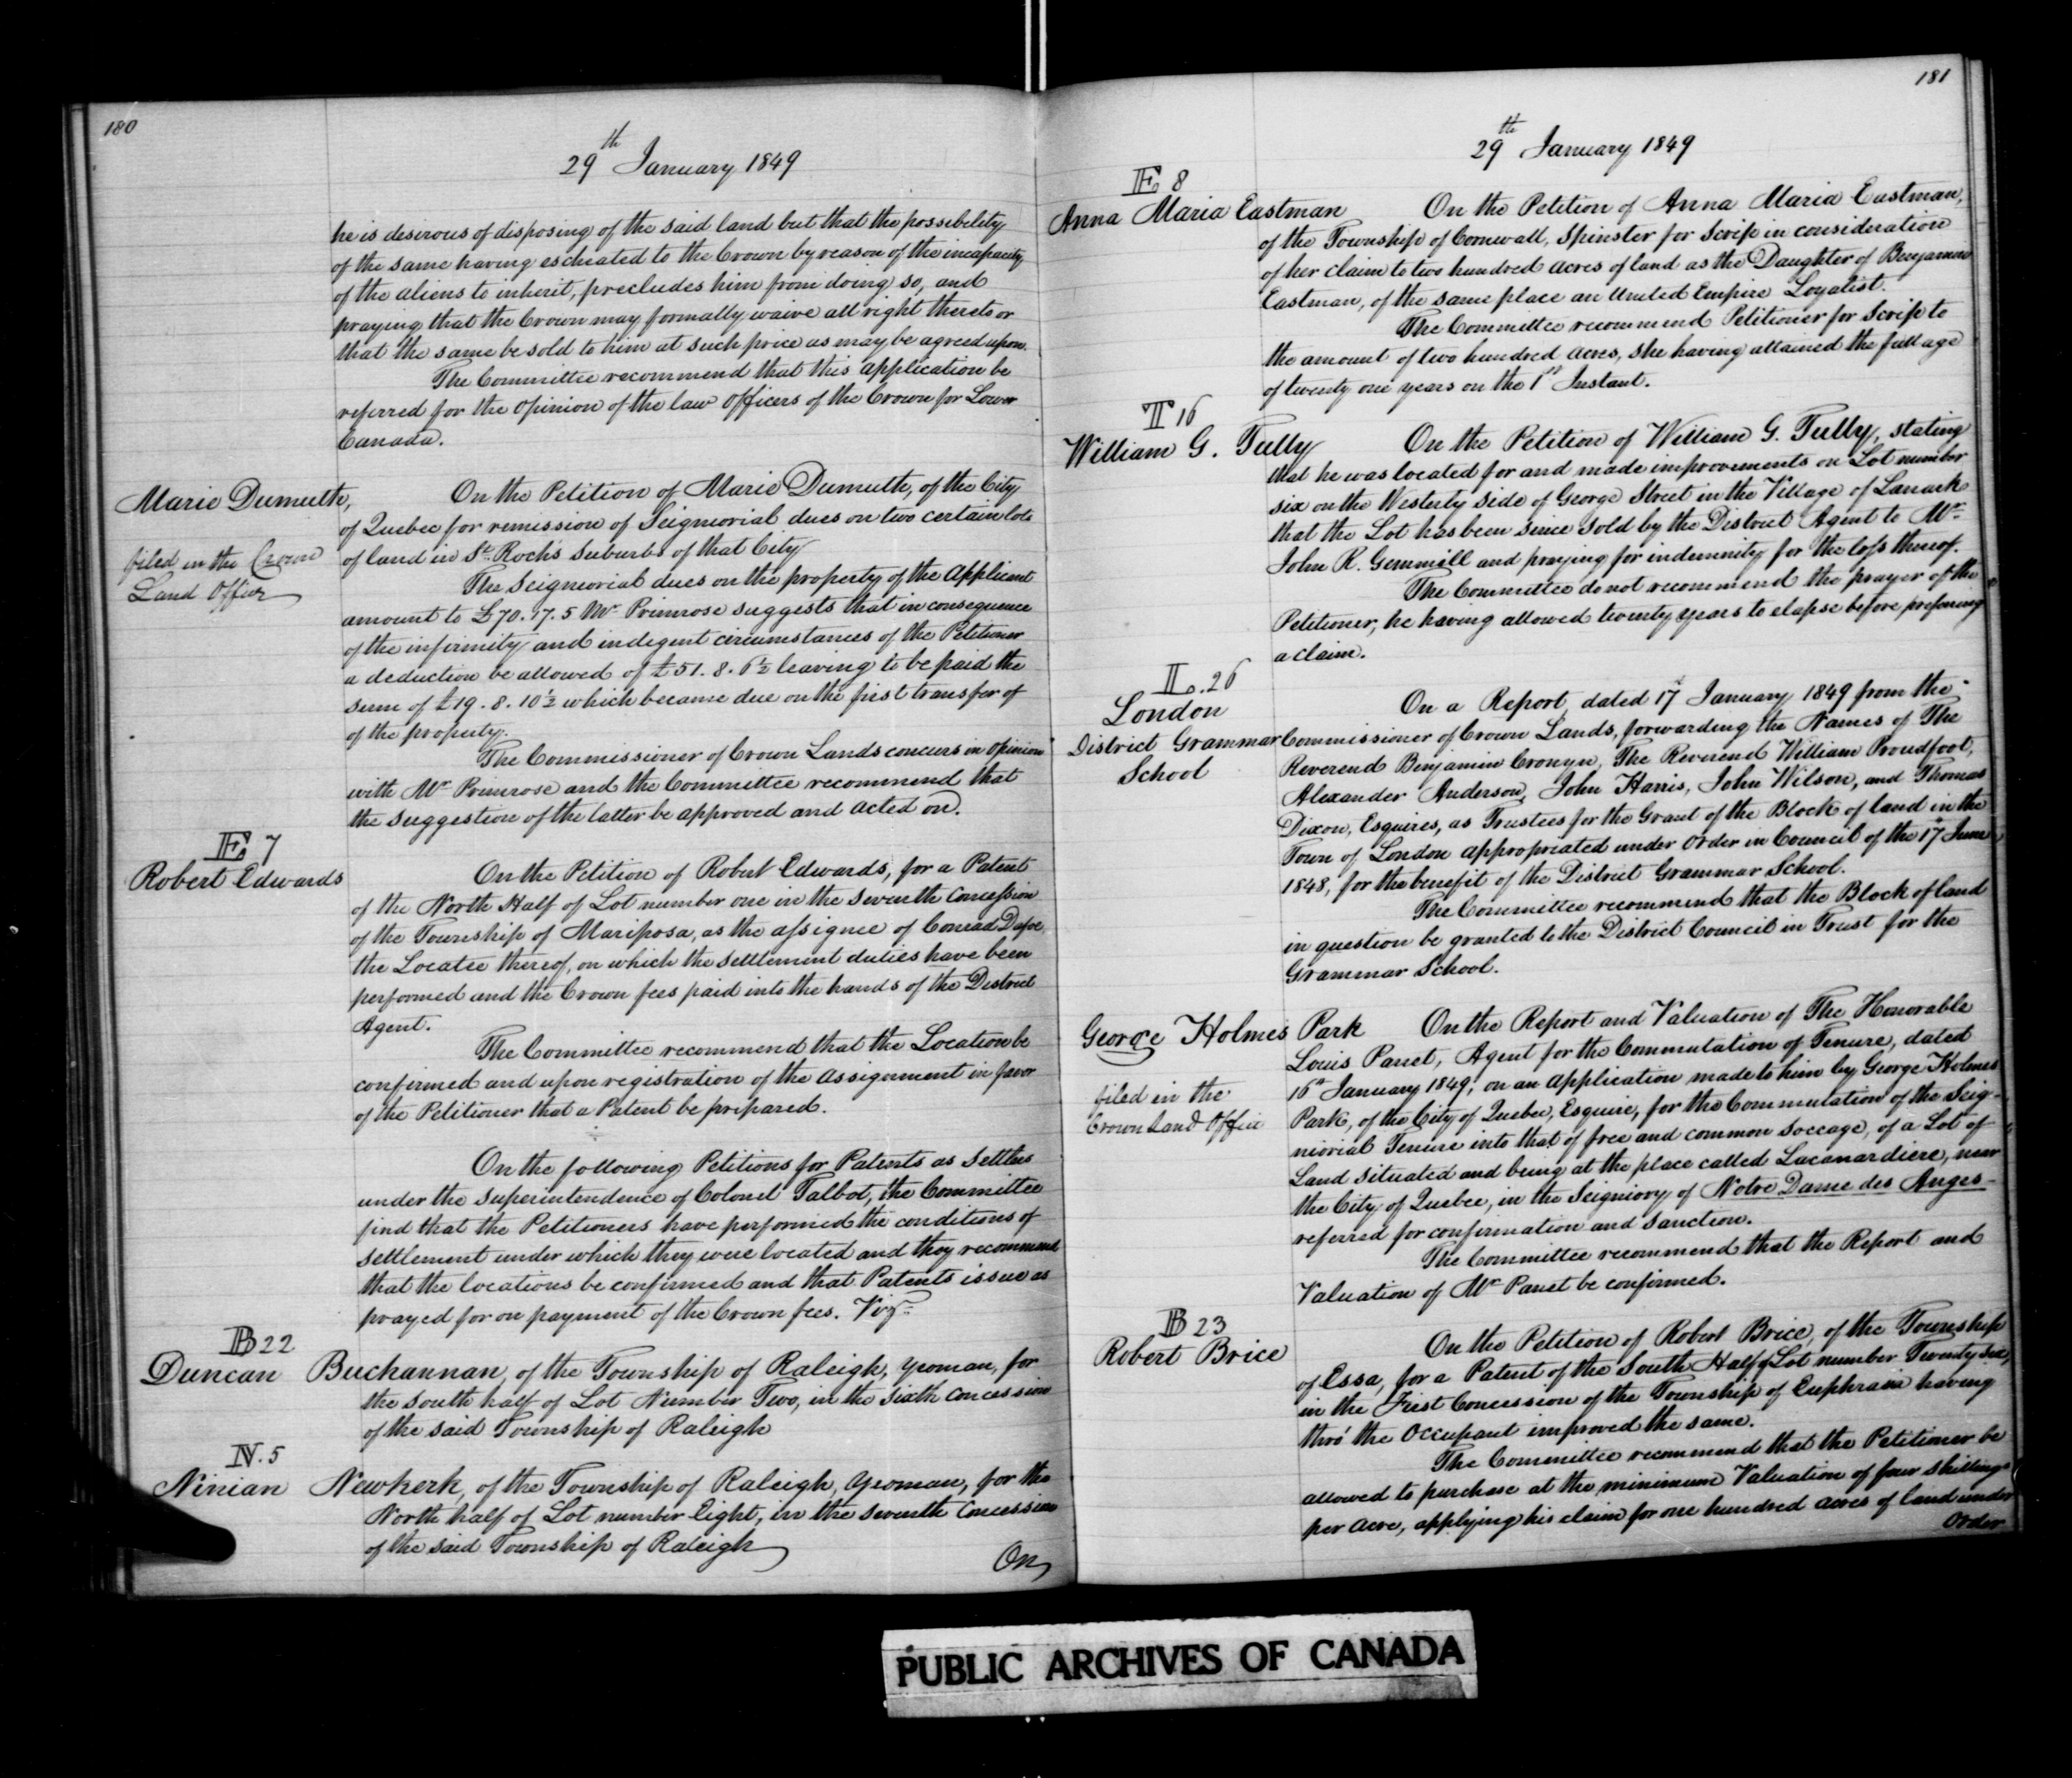 180
29th January 1849
he is desirous of disposing of the said land but that the possibility
of the same having escheated to the Crown by reason of the incapacity
of the aliens to inherit, precludes him from doing so, and
praying that the Crown may formally waive all right thereto or
that the same be sold to him at such price as may be agreed upon.
The Committee recommend that this application be
referred for the opinion of the law officers of the Crown for Lower
Canada.
Marie Dumuth,
filed in the Crown
Land Office
On the Petition of Marie Dumuth, of the City
of Quebec for remission of Seigniorial dues on two certain lots
of land in St. Roch's suburbs of that City
The Seigniorial dues on the property of the Applicant
amount to £70.17.5 Mr Primrose suggests that in consequence
of the infirmity and indigent circumstances of the Petitioner
a deduction be allowed of £51.8.6½ leaving to be paid the
sum of £19.8.10½ which became due on the first transfer of
of the property.
The Commissioner of Crown Lands concurs in opinion
with Mr Primrose and the Committee recommend that
the suggestion of the latter be approved and acted on.
E 7
Robert Edwards
On the Petition of Robert Edwards, for a Patent
of the North Half of Lot number one in the seventh Concession
of the Township of Mariposa, as the assignee of Conrad Dafoe
the Locatee thereof, on which the settlement duties have been
performed and the Crown fees paid into the hands of the District
Agent.
The Committee recommend that the Location be
confirmed and upon registration of the assignment in favor
of the Petitioner that a Patent be prepared.
On the following Petitions for Patents as settlers
under the superintendence of Colonel Talbot, the Committee
find that the Petitioners have performed the conditions of
settlement under which they were located and they recommend
that the locations be confirmed and that Patents issue as
prayed for on payment of the Crown fees. Viz:
B 22
Duncan Buchannan, of the Township of Raleigh, yeoman, for
the south half of Lot Number Two, in the Sixth Concession
of the said Township of Raleigh
N. 5
Ninian Newkerk, of the Township of Raleigh, yeoman, for the
North half of Lot number Eight, in the seventh Concession
of the said Township of Raleigh
On
181
29th January 1849
E 8
Anna Maria Eastman
On the Petition of Anna Maria Eastman,
of the Township of Cornwall, Spinster for Scrip in consideration
of her claim to two hundred acres of land as the Daughter of Benjamin
Eastman, of the same place an United Empire Loyalist.
The Committee recommend Petitioner for Scrip to
the amount of two hundred acres, she having attained the full age
of twenty one years on the 1st Instant.
T 16
William G. Tully
On the Petition of William G. Tully, stating
that he was located for and made improvements on Lot number
six on the Westerly side of George Street in the Village of Lanark
that the Lot has been since sold by the District Agent to Mr
John R. Gemmill and praying for indemnity for the loss thereof.
The Committee do not recommend the prayer of the
Petitioner, he having allowed twenty years to elapse before preferring
a claim.
L. 26
London
District Grammar
School
On a Report, dated 17 January 1849 from the
Commissioner of Crown Lands, forwarding the Names of The
Reverend Benjamin Cronyn, The Reverend William Proudfoot,
Alexander Anderson, John Harris, John Wilson, and Thomas
Dixon, Esquires, as Trustees for the Grant of the Block of land in the
Town of London appropriated under Order in Council of the 17 June
1848, for the benefit of the District Grammar School.
The Committee recommend that the Block of land
in question be granted to the District Council in Trust for the
Grammar School.
George Holmes Park
filed in the
Crown Land Office
On the Report and Valuation of The Honorable
Louis Panet, Agent for the Commutation of Tenure, dated
16th January 1849, on an application made to him by George Holmes
Park, of the City of Quebec, Esquire, for the Commutation of the Seig-
niorial Tenure into that of free and common soccage, of a Lot of
Land situated and being at the place called Lacanardiere, near
the City of Quebec, in the Seigniory of Notre Dame des Anges
referred for confirmation and sanction.
The Committee recommend that the Report and
Valuation of Mr Panet be confirmed.
B 23
Robert Brice
On the Petition of Robert Brice, of the Township
of Essa, for a Patent of the South Half of Lot number Twenty six,
in the First Concession of the Township of Euphrasia having
thro' the Occupant improved the same.
The Committee recommend that the Petitioner be
allowed to purchase at the minimum Valuation of four shillings
per Acre, applying his claim for one hundred acres of land under
Order
PUBLIC ARCHIVES OF CANADA